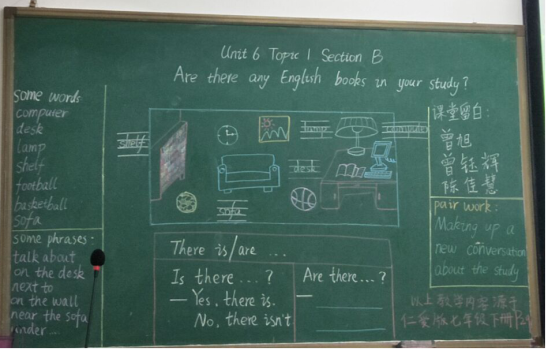 Unit 6 Topic 1 Section B
Are there any English books in your study?
some words
computer
desk
lamp
shelf
football
basketball
sofa
some phrases:
talk about
on the desk
next to
on the wall
near the sofa
under...
shelf
lamp
computer
desk
sofa
There is/are ...
Is there ...?
— Yes, there is.
No, there isn't
Are there...?
—
课堂留白:
曾旭
曾钰辉
陈佳慧
pair work:
Making up a
new conversation
about the study
以上教学内容源于
仁爱版七年级下册